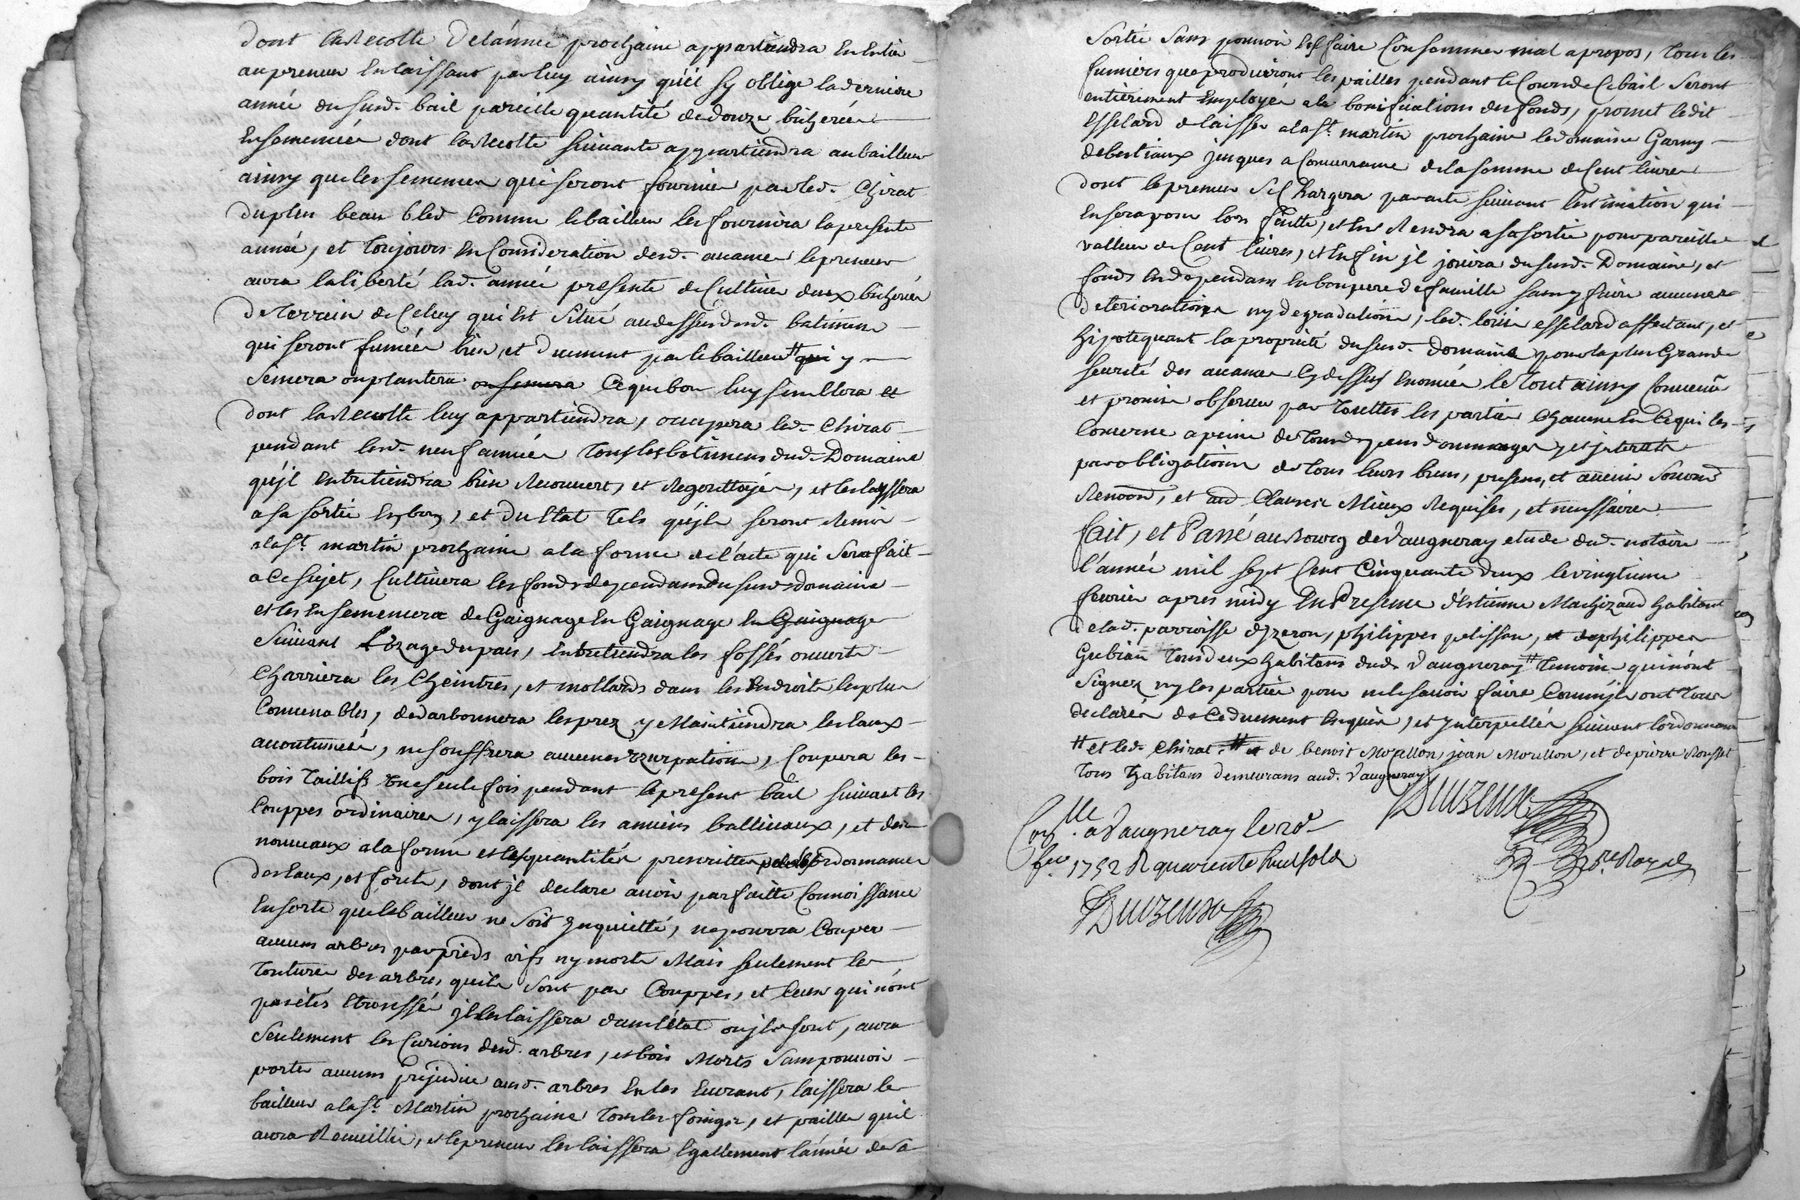 dont la Recolte de lánnée prochaine appartiendra en entier
au preneur en laissant par luy ainsy quil sy oblige la derniere
année du susd. bail pareille quantité de douze bicherées
ensemencée dont la Recolte suivante appartiendra au bailleur
ainsy que les semences qui seront fournies par led. Chirat
du plus beau bled comme le bailleur les fournira la presente
année, et toujours en Consideration desd. avances le preneur
aura la liberté lad. année presente de Cultiver deux bicherées
de terrein de Celuy qui est situé au dessus desd. batimens
qui seront fumées bien, et duement par le bailleur # qui y
semera ou plantera ou semera Ce que bon luy semblera et
dont la Recolte luy appartiendra, occupera led. Chirat
pendant lesd. neuf années tous les batimens dud. Domaine
qu'jl entretiendra bien Recouvert, et Regouttoyés, et les laissera
a sa sortie en bon, et du Etat tels qu'jls seront Remis
a la st. martin prochaine a la forme de l'acte qui sera fait
a Ce sujet, Cultivera les fonds dependans du susd. domaine
et les ensemencera de Gaignage en Gaignage en Gaignage
suivant L'uzage du pais, entretiendra les fossés ouverts
Charriera les Cheintres, et mollards dans les endroits les plus
Convenables, desarbonnera les prez y Maintiendra les Eaux
accoutumées, ne souffrera aucunes uzurpations, Coupera les
bois Taillifs une seule fois pendant le present bail suivant les
Couppes ordinaires, y laissera les anciens ballivaux, et des
nouveaux a la forme et les quantités prescrittes par les ordonnances
des Eaux, et forets, dont jl declare avoir parfaitte Connoissance
en sorte que le bailleur ne soit jnquietté, ne pourra Couper
aucuns arbres par pieds vifs ny morts Mais seulement la
Tonture des arbres, qui se sont par Couppes, et Ceux qui n'ont
pas étés Etroussés jl les laissera dans l'état ou jls sont, aura
seulement les Curions desd. arbres, et bois Morts sans pouvoir
porter aucuns prejudice ausd. arbres en les Curant, laissera le
bailleur a la st. Martin prochaine tous les foings, et pailles quil
aura Recueillie, et le preneur les laissera Egallement lannée de sa
sortie sans pouvoir les faire Consommer mal a propos, tous les
fumiers que produiront les pailles pendant le Cours de Ce bail seront
entièrement Employés a la bonification des fonds, promet ledit
Esselard de laisser a la st. martin prochaine le domaine Garny
de bestiaux jusques a Concurrance de la somme de Cent livres
dont le preneur se Chargera par acte suivant lestimation qui
en sera pour lors faitte, et en Rendra a sa sortie pour pareille
valleur de Cent livres, et enfin jl jouira du susd. Domaine, et
fonds en dependans en bon pere de famille sans y faire aucunes
deteriorations ny degradations, led. Esselard affectant, et
hipotequant la proprieté du susd. domaine pour la plus Grande
seureté des avances Cy dessus Enoncées le tout ainsy Convenu
et promis observer par toutes les parties Chacune en Ce qui les
Concerne a peine de tous depens dommages, et jnterets
par obligation de tous leurs biens, presens, et avenir soumis
Renoon., et aud Clauses Mieux Requises, et necessaires
fait, et Passé au Bourg de Vaugneray etude dud. notaire
l'année mil sept Cent Cinquante deux le vingtieme
fevrier apres midy En Presence d'Estienne Machizaud habitant
de lad. parroisse dyzeron, philippes pelisson, et de philippes
Gubian tous deux habitans dud. Vaugneray # temoins qui n'ont
signez ny les parties pour ne le savoir faire Commjls ont tous
declarés de Ce duement enquis, et jnterpellés suivant l'ordonnance
# et led. Chirat. # et de benoit Moullon, jean Moullon, et de pierre Rousset
tous habitans demeurans aud. Vaugneray
Conlle. a Vaugneray le 20e
fer. 1752 R quarente huit sols